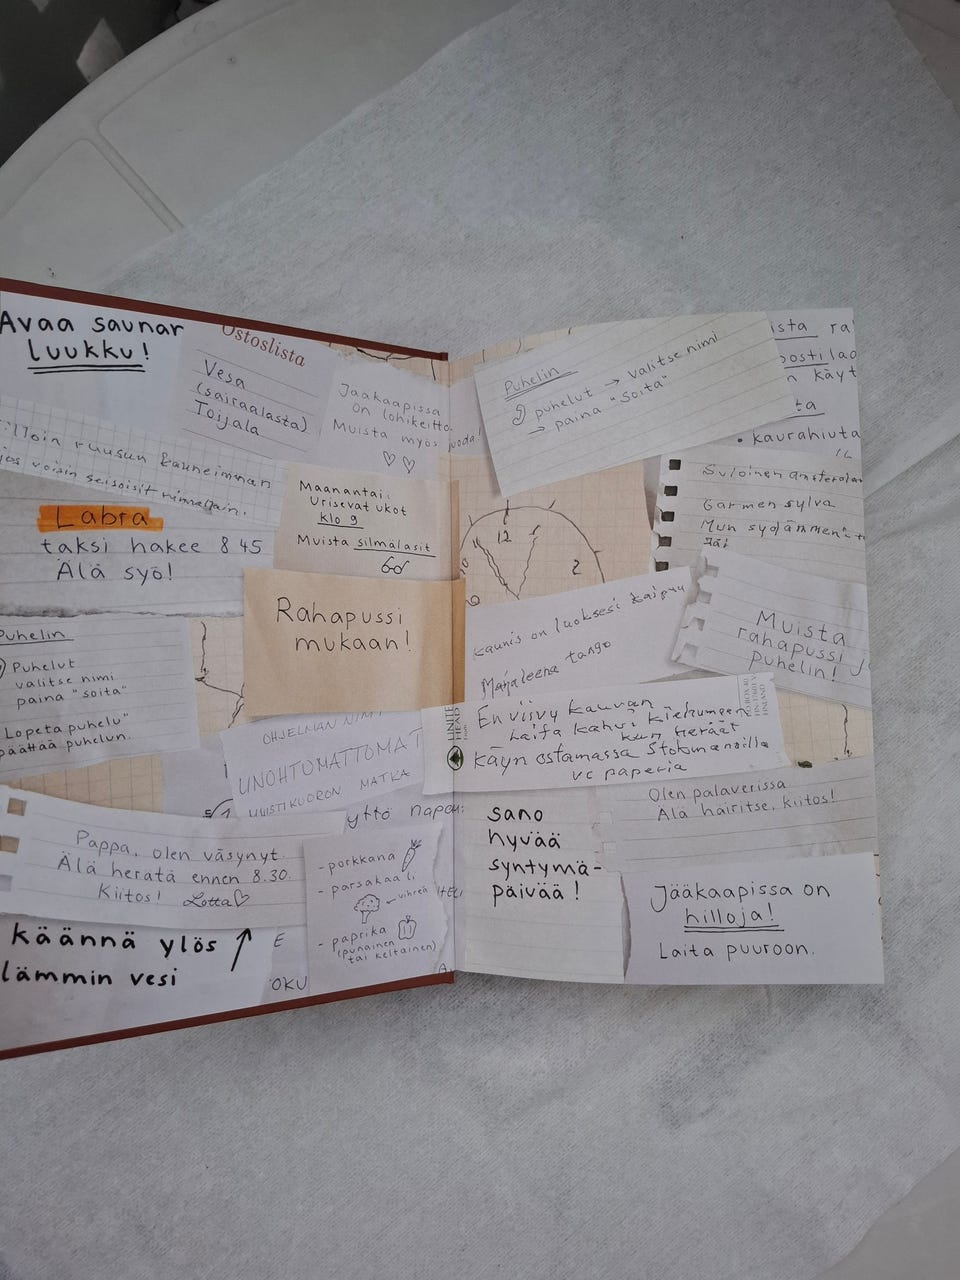 Avaa saunan
luukku!
Ostoslista
Vesa
(sairaalasta)
Toijala
Jääkaapissa
on lohikeitto.
Muista myös juoda!
ruusun kauneimman
jos voisin seisoisit rinnallain.
Labra
taksi hakee 8 45
Älä syö!
Maanantai:
Urisevat ukot
klo 9
Muista silmälasit
Rahapussi
mukaan!
Puhelin
Puhelut
valitse nimi
paina "soita"
"Lopeta puhelu"
päättää puhelun.
OHJELMAN NIMI
UNOHTUMATTOMAT
MUISTIKUORON MATKA
yttö napou:
Pappa, olen väsynyt.
Älä herätä ennen 8.30.
Kiitos! Lotta
- porkkana
- parsakaali
vihreä
- paprika
(punainen
tai keltainen)
käännä ylös
lämmin vesi
E
OKU
Puhelin
puhelut → valitse nimi
→ paina "soita"
ista ra
postilao
n käyt
ta
• kaurahiuta
12
2
Suloinen
Carmen sylva
Mun sydämmen
kaunis on luoksesi kaipuu
Marjaleena tango
Muista
rahapussi J
puhelin!
UNITE
HEAD
En viivy kauvan
Laita kahvi kiehumaan
kun heräät
käyn ostamassa Stokmannilla
vc paperia
FINLAND
Olen palaverissa
Älä häiritse, kiitos!
sano
hyvää
syntymä-
päivää!
Jääkaapissa on
hilloja!
Laita puuroon.